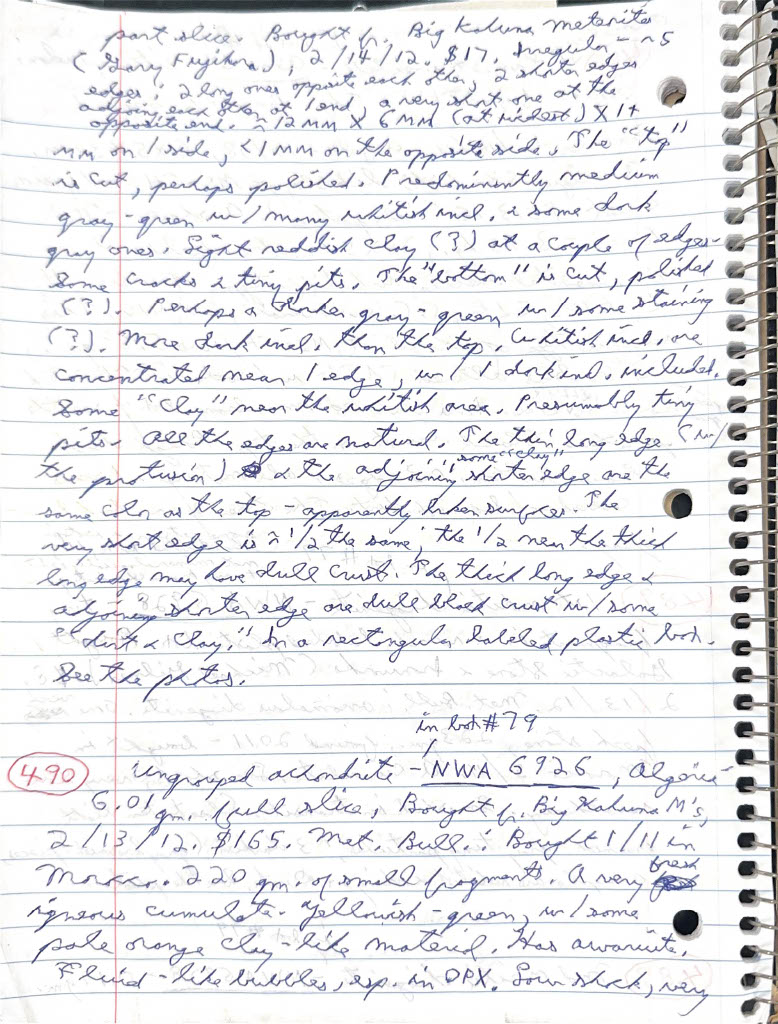 part slice. Bought fr. Big Kahuna Meteorites
(Gary Fujihara), 2/14/12. $17. Irregular - ~5
edges; 2 long ones opposite each other, 2 shorter edges
adjoining each other at 1 end, a very short one at the
opposite end. ~12 MM X 6 MM (at widest) X 1+
MM on 1 side, <1 MM on the opposite side. The "top"
is cut, perhaps polished. Predominently medium
gray-green w/ many whitish incl. & some dark
gray ones. Light reddish clay (?) at a couple of edges.
Some cracks & tiny pits. The "bottom" is cut, polished
(?). Perhaps a darker gray-green w/ some staining
(?). More dark incl. than the top. Whitish incl. are
concentrated near 1 edge, w/ 1 dark incl. included.
Some "clay" near the whitish area. Presumably tiny
pits. All the edges are natural. The thin long edge (w/
some "clay"
the protusion) & the adjoining shorter edge are the
same color as the top - apparently broken surfaces. The
very short edge is ~ 1/2 the same, the 1/2 near the thick
long edge may have dull crust. The thick long edge &
adjoining shorter edge are dull black crust w/ some
"dirt & clay." In a rectangular labeled plastic box.
See the photos.
in box #79
490 Ungrouped achondrite - NWA 6926, Algeria
6.01 gm. full slice, Bought fr. Big Kahuna M's,
2/13/12. $165. Met. Bull.: Bought 1/11 in
Morocco. 220 gm. of small fragments. A very fresh
igneous cumulate. Yellowish-green, w/ some
pale orange clay-like material. Has awaruite.
Fluid-like bubbles, esp. in OPX. Low shock, very